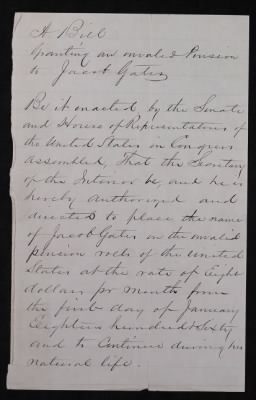 A Bill
Granting an invalid Pension
to Jacob Gates
Be it enacted by the Senate
and House of Representatives of
the United States in Congress
assembled, That the Secretary
of the Interior be, and he is
hereby authorized and
directed to place the name
of Jacob Gates on the invalid
pension rolls of the United
States at the rate of Eight
dollars pr month from
the first day of January
Eighteen hundred & Sixty
and to continue during his
natural life.